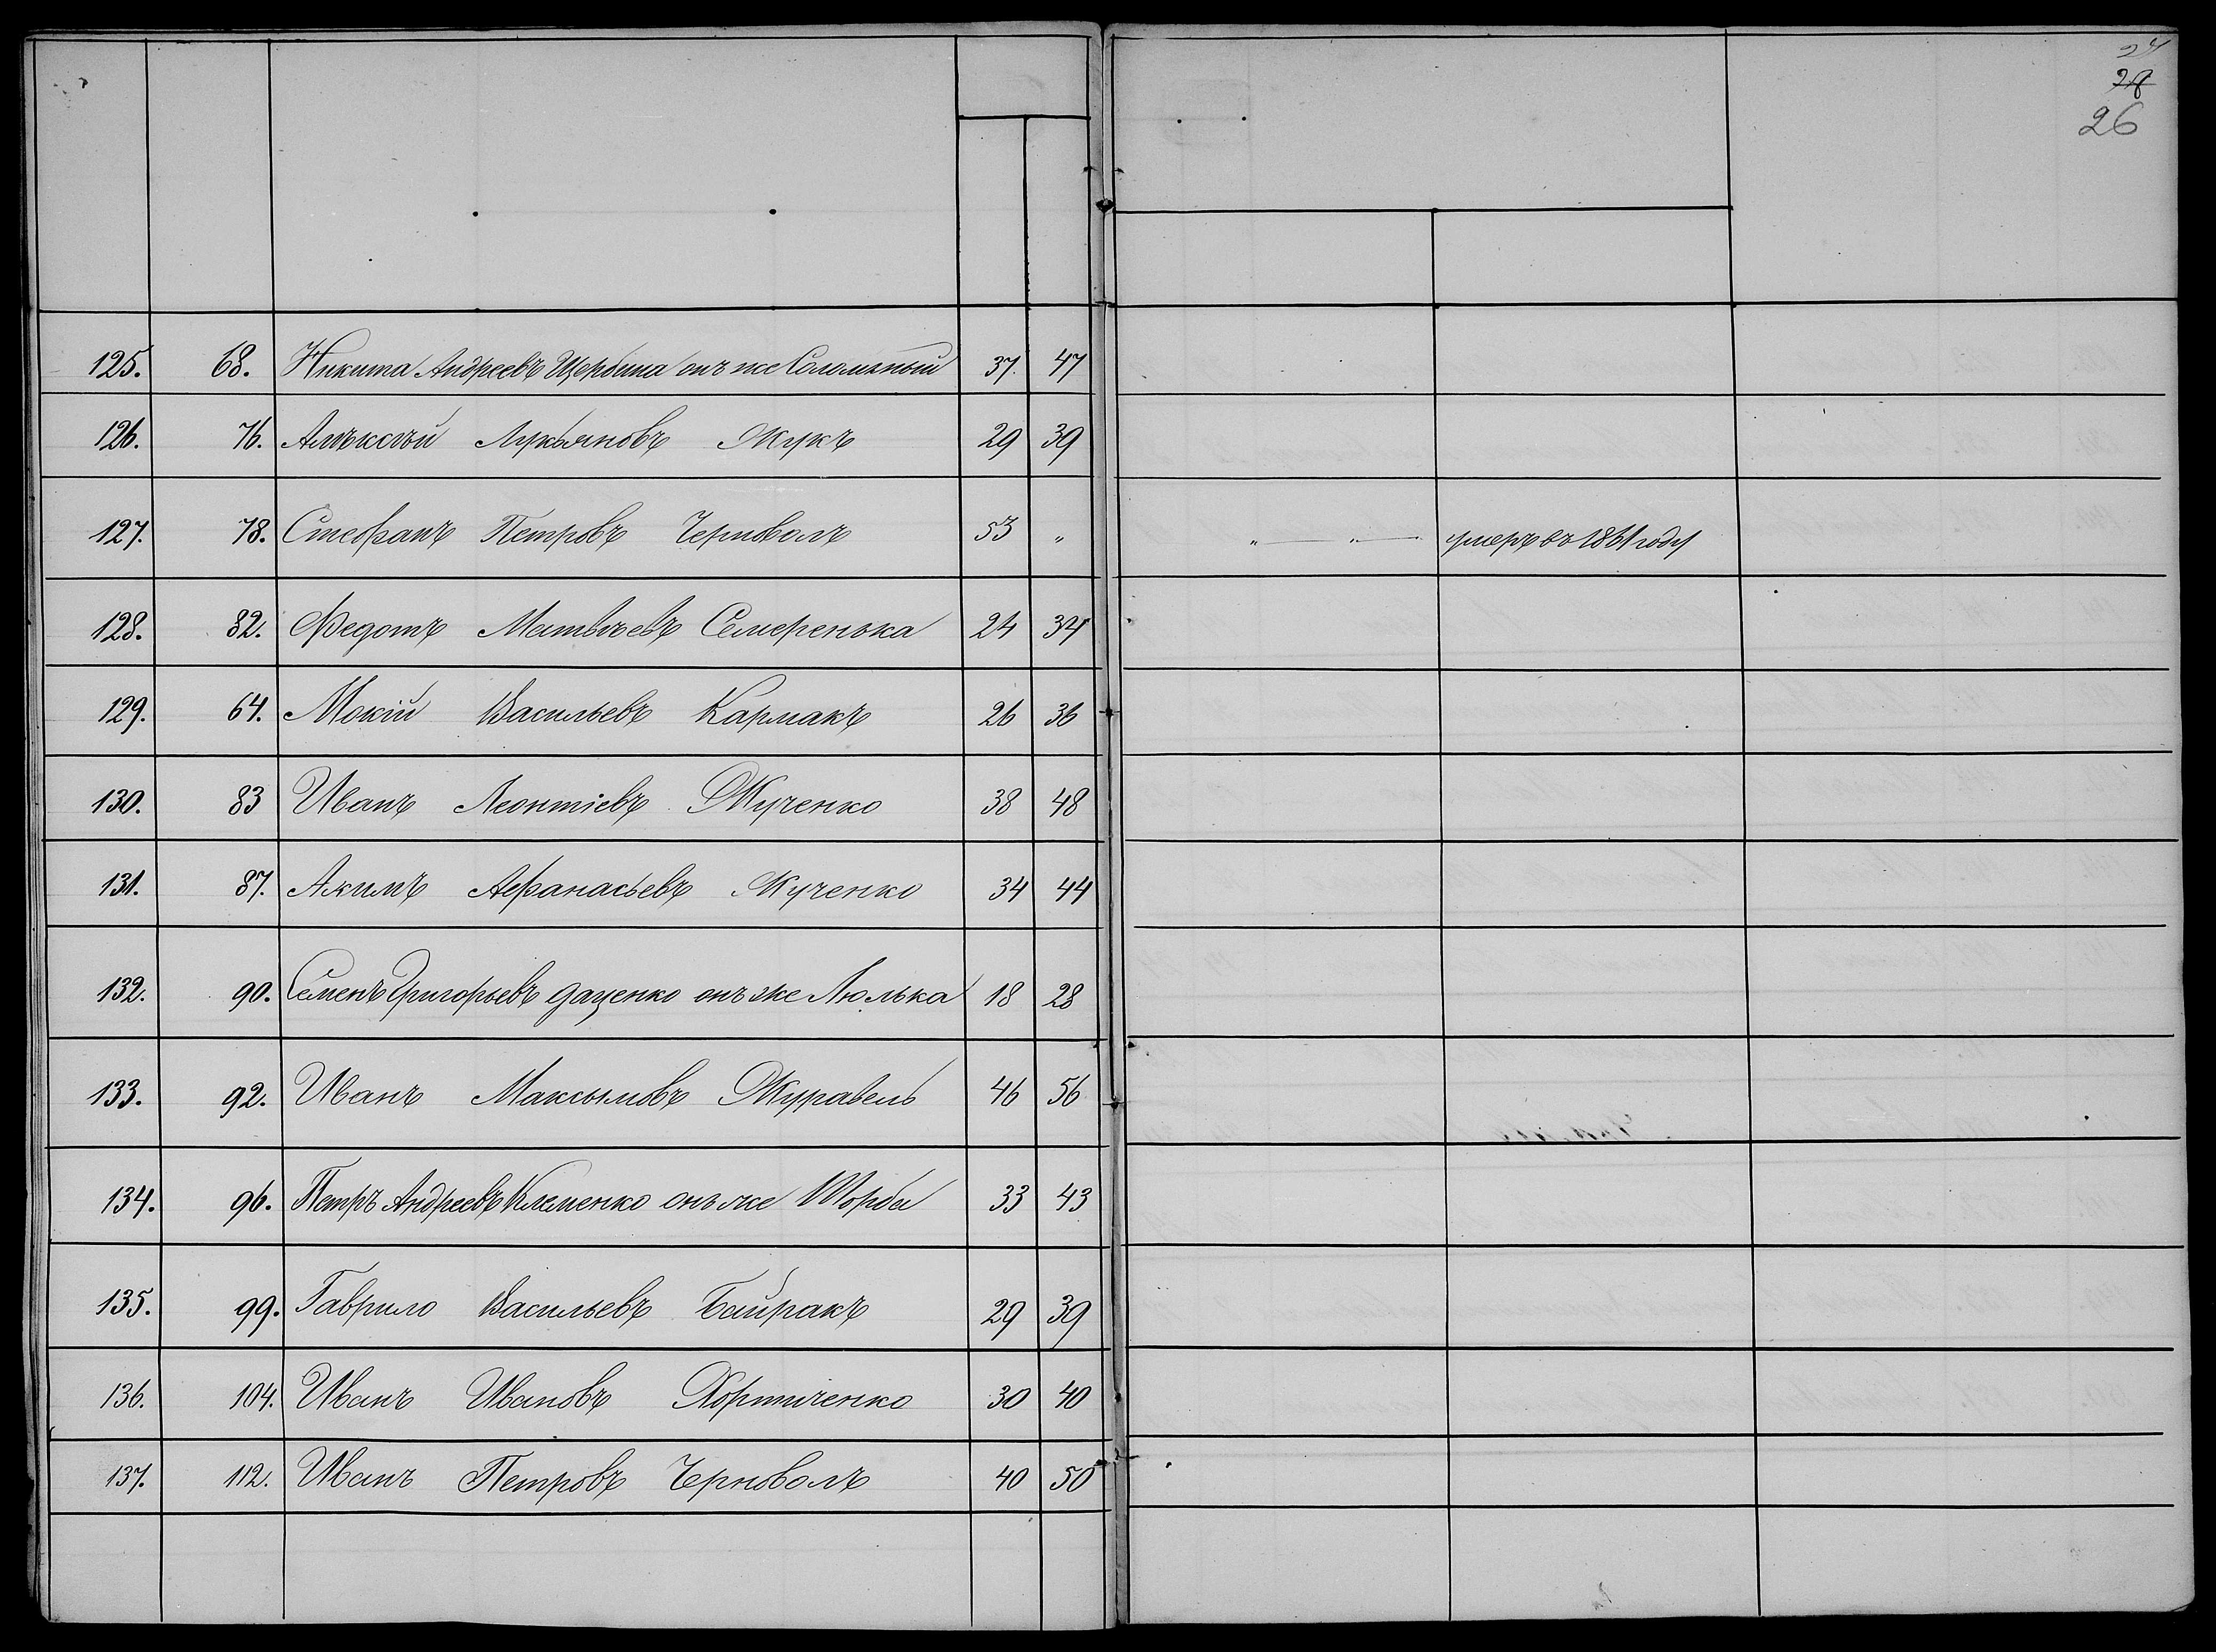 27
28
26
125. 68. Никита Андреевъ Щербина онъ же Соломяный 37. 47
126. 76. Алѣксѣй Лукьяновъ Жукъ 29 39
127. 78. Стефанъ Петровъ Черноволъ 53 „ „ „ умеръ въ 1861 году
128. 82. Федотъ Матвѣевъ Семеренька 24 34
129. 64. Мокій Васильевъ Кармакъ 26 36
130. 83 Иванъ Леонтіевъ Жученко 38 48
131. 87. Акимъ Афанасьевъ Жученко 34 44
132. 90. Семенъ Григорьевъ Даценко онъ же Люлька 18 28
133. 92. Иванъ Максымовъ Журавель 46 56
134. 96. Петръ Андреевъ Клеменко онъ же Шорба 33 43
135. 99. Гаврило Васильевъ Байракъ 29 39
136. 104. Иванъ Ивановъ Хортиченко 30 40
137. 112. Иванъ Петровъ Черноволъ 40 50